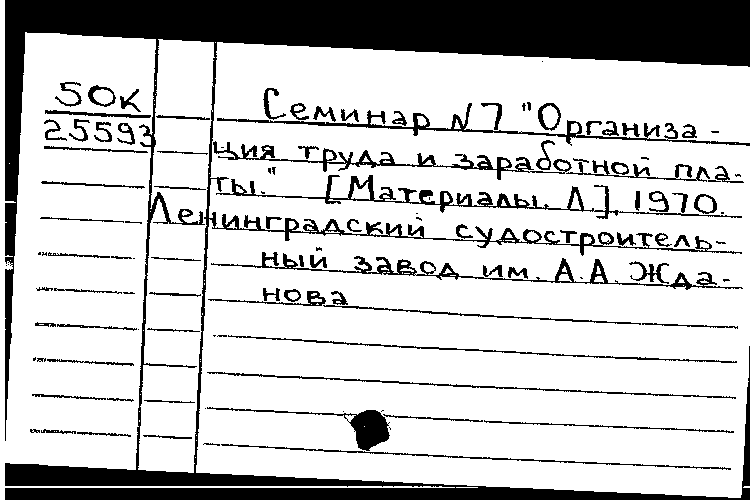 50к
25593
Семинар N 7 "Организа-
ция труда и заработной пла-
ты." [Материалы. Л.], 1970.
Ленинградский судостроитель-
ный завод им. А.А. Жда-
нова